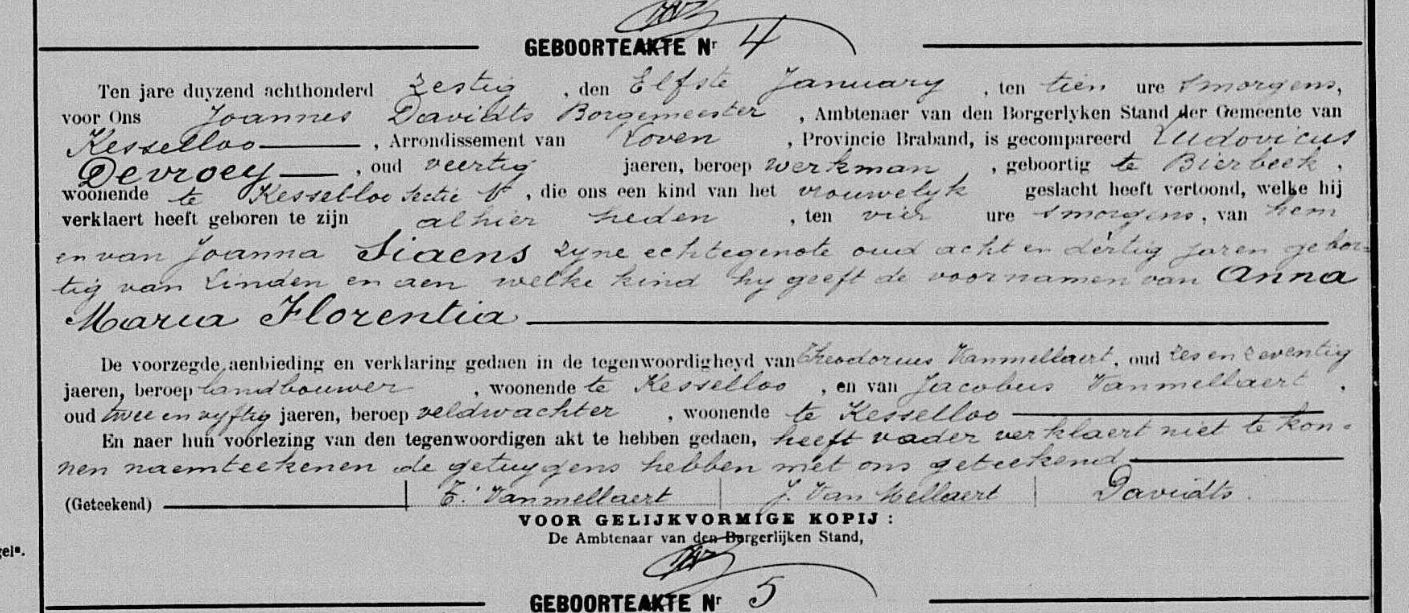 GEBOORTEAKTE Nr 4
Ten jare duyzend achthonderd zestig , den Elfste January , ten tien ure smorgens,
voor Ons Joannes Davidts Borgemeester , Ambtenaer van den Borgerlyken Stand der Gemeente van
Kesselloo , Arrondissement van Loven , Provincie Braband, is gecompareerd Ludovicus
Devroey , oud veertig jaeren, beroep werkman , geboortig te Bierbeek ,
woonende te Kesselloo sectie , die ons een kind van het vrouwelyk geslacht heeft vertoond, welke hij
verklaert heeft geboren te zijn alhier heden , ten vier ure smorgens , van hem
en van Joanna Siaens zyne echtegenote oud acht en dertig jaren gebor=
tig van Linden en aen welke kind hy geeft de voornamen van Anna
Maria Florentia
De voorzegde aenbieding en verklaring gedaen in de tegenwoordigheyd van Theodorus Vanmellaert, oud zes en zeventig
jaeren, beroep landbouwer , woonende te Kesselloo , en van Jacobus Vanmellaert ,
oud twee en vyftig jaeren, beroep veldwachter , woonende te Kesselloo
En naer hun voorlezing van den tegenwoordigen akt te hebben gedaen, heeft vader verklaert niet te kon=
nen naemteekenen de getuygens hebben met ons geteekend
(Geteekend) T. Vanmellaert J. Van Mellaert Davidts.
VOOR GELIJKVORMIGE KOPIJ :
De Ambtenaar van den Burgerlijken Stand,
gels.
GEBOORTEAKTE Nr 5